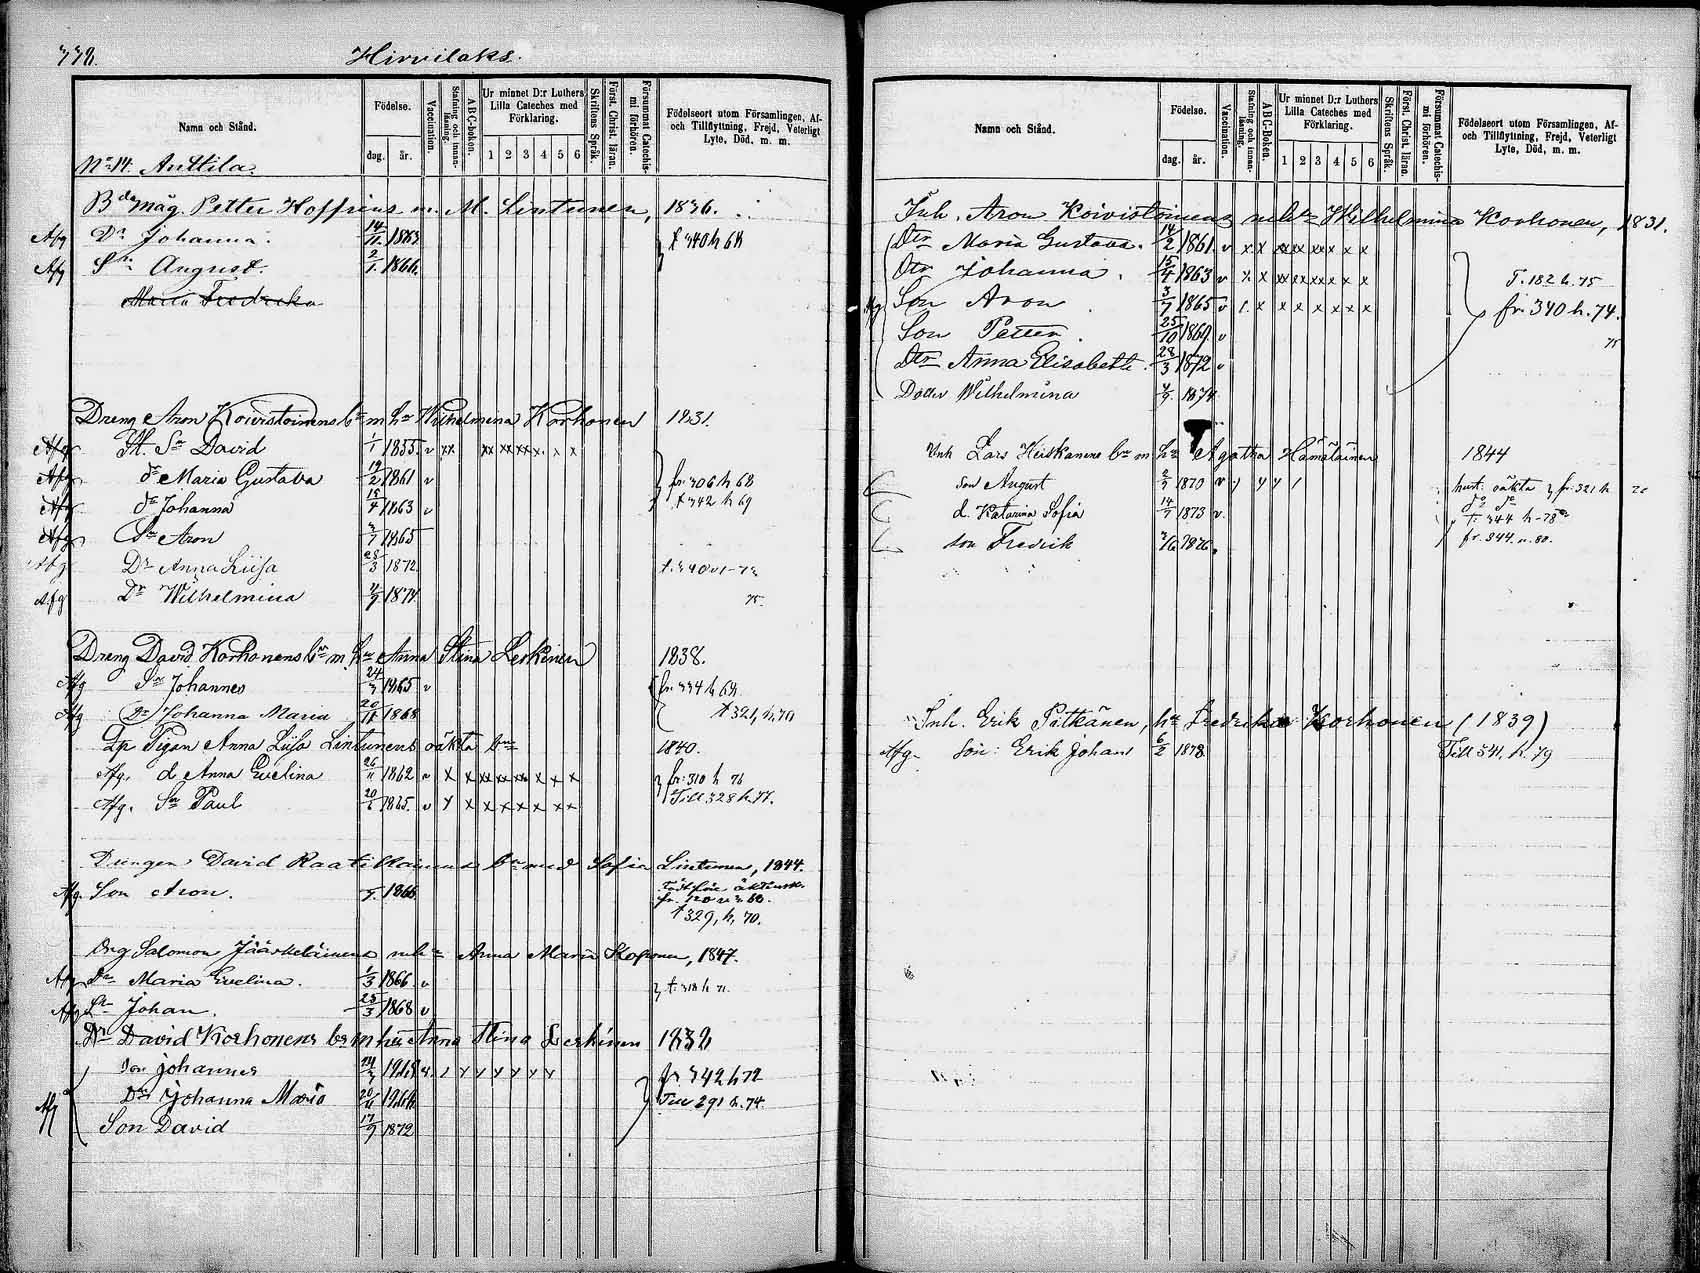 338.
Hirvilaks.
Namn och Stånd.
Födelse.
dag. år.
Vaccination.
Stafning och innanläsning.
A B C-boken.
Ur minnet D:r Luthers Lilla Cateches med Förklaring.
1 2 3 4 5 6
Skriftens Språk.
Först. Christ. läran.
Försummat Catechismi förhören.
Födelseort utom Församlingen, Af- och Tillflyttning, Frejd, Veterligt Lyte, Död, m. m.
No 14. Anttila.
Petter Hoffrens M. Lintunen, 1836.
Afg Dr Johanna. 14/11 1863 t 340 h 68
Afg Sn August. 2/1 1866
Maria Fredrika
Dreng Aron Koivistoinens bn m hu Wilhelmina Korhonen 1831.
Afg Sn David 1/1 1855 v xx xx xx xx x x x
Afg dr Maria Gustava 14/2 1861 v fr. 306 h 68
Afg dr Johanna 15/4 1863 v t 342 h 69
Afg Sn Aron 3/7 1865
Afg Dr Anna Liisa 28/3 1872
Afg Dr Wilhelmina 4/9 1874 75.
Dreng David Korhonens bn m hu Anna Stina Leskinen 1838.
Afg Sn Johannes 24/7 1865 v fr. 334 h 68
Afg Dr Johanna Maria 20/11 1868 t 321, h. 70
Pigan Anna Liisa Lintunens oäkta bn 1840.
Afg. d Anna Evelina 26/11 1862 v x x xx xx xx x x x fr. 310 h 71
Afg. Sn Paul 20/6 1865. v x x x x x x x x Till 328 h. 77.
Drengen David Raatikainens bn med Sofia Lintunen, 1844.
Afg. Son Aron. 1866
t 329, h, 70.
Drg Salomon Jääskeläinens m h Anna Maria Kaponen, 1847.
Afg Dr Maria Evelina. 1/3 1866 v t. 318 h 71.
Afg Sn Johan. 25/3 1868 v
Dr David Korhonens bn m hu Anna Stina Leskinen 1838
son Johannes 24/7 fr 342 h 72
Dr Johanna Maria 20/11 Till 291 h. 74.
Afg Son David 17/9 1872
Namn och Stånd.
Födelse.
dag. år.
Vaccination.
Stafning och innanläsning.
ABC-Boken.
Ur minnet D:r Luthers Lilla Cateches med Förklaring.
1 2 3 4 5 6
Skriftens Språk.
Först. Christ. läran.
Försummat Catechismi förhören.
Födelseort utom Församlingen, Af- och Tillflyttning, Frejd, Veterligt Lyte, Död, m. m.
Inh. Aron Koivistoinens Wilhelmina Korhonen, 1831.
Dtr Maria Gustava. 14/2 1861 v x x xx xx xx x x x
Dtr Johanna. 15/4 1863 v x x xx xx x x x x T. 182 h. 75
Afg Son Aron 3/7 1865 v x x x x x x x fr. 340 h. 74.
Son Petter 25/10 1869 v 75
Dtr Anna Elisabeth 28/3 1872 v
Dotter Wilhelmina 4/9 1874
Inh Lars Heiskanens bn m hu Agatha Hämäläinen 1844
son August 1870 v fr. 321 h
d. Katarina Sofia 14/7 1873 v. T. 344 h-78
son Fredrik 1876 fr. 344. h. 80.
Inh. Erik Pitkänen, hu Fredrika Korhonen (1839)
Afg. Son: Erik Johan 6/2 1878 Till 541, h. 79